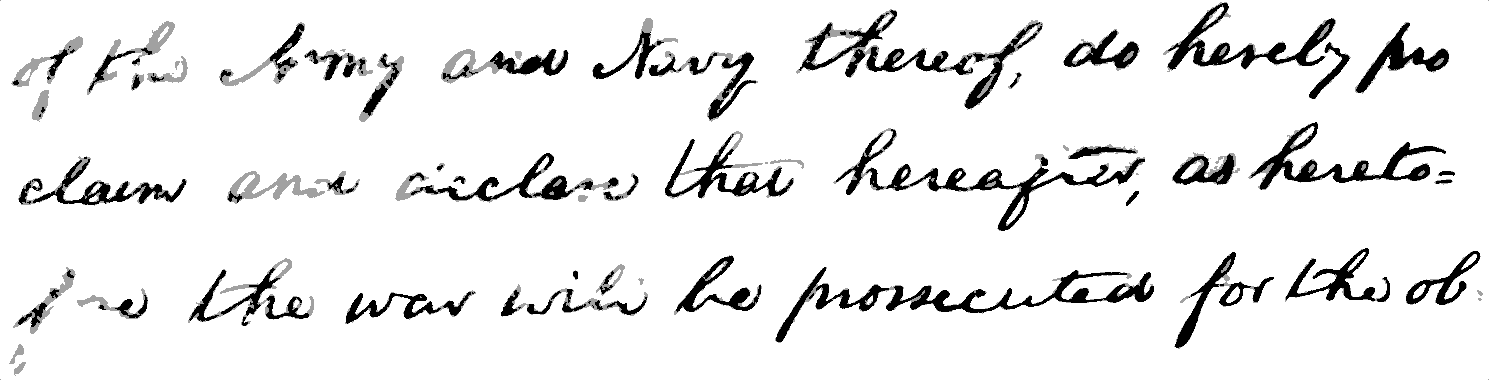 of the Army and Navy thereof, do hereby pro
claim and declare that hereafter, as hereto=
fore the war will be prosecuted for the ob